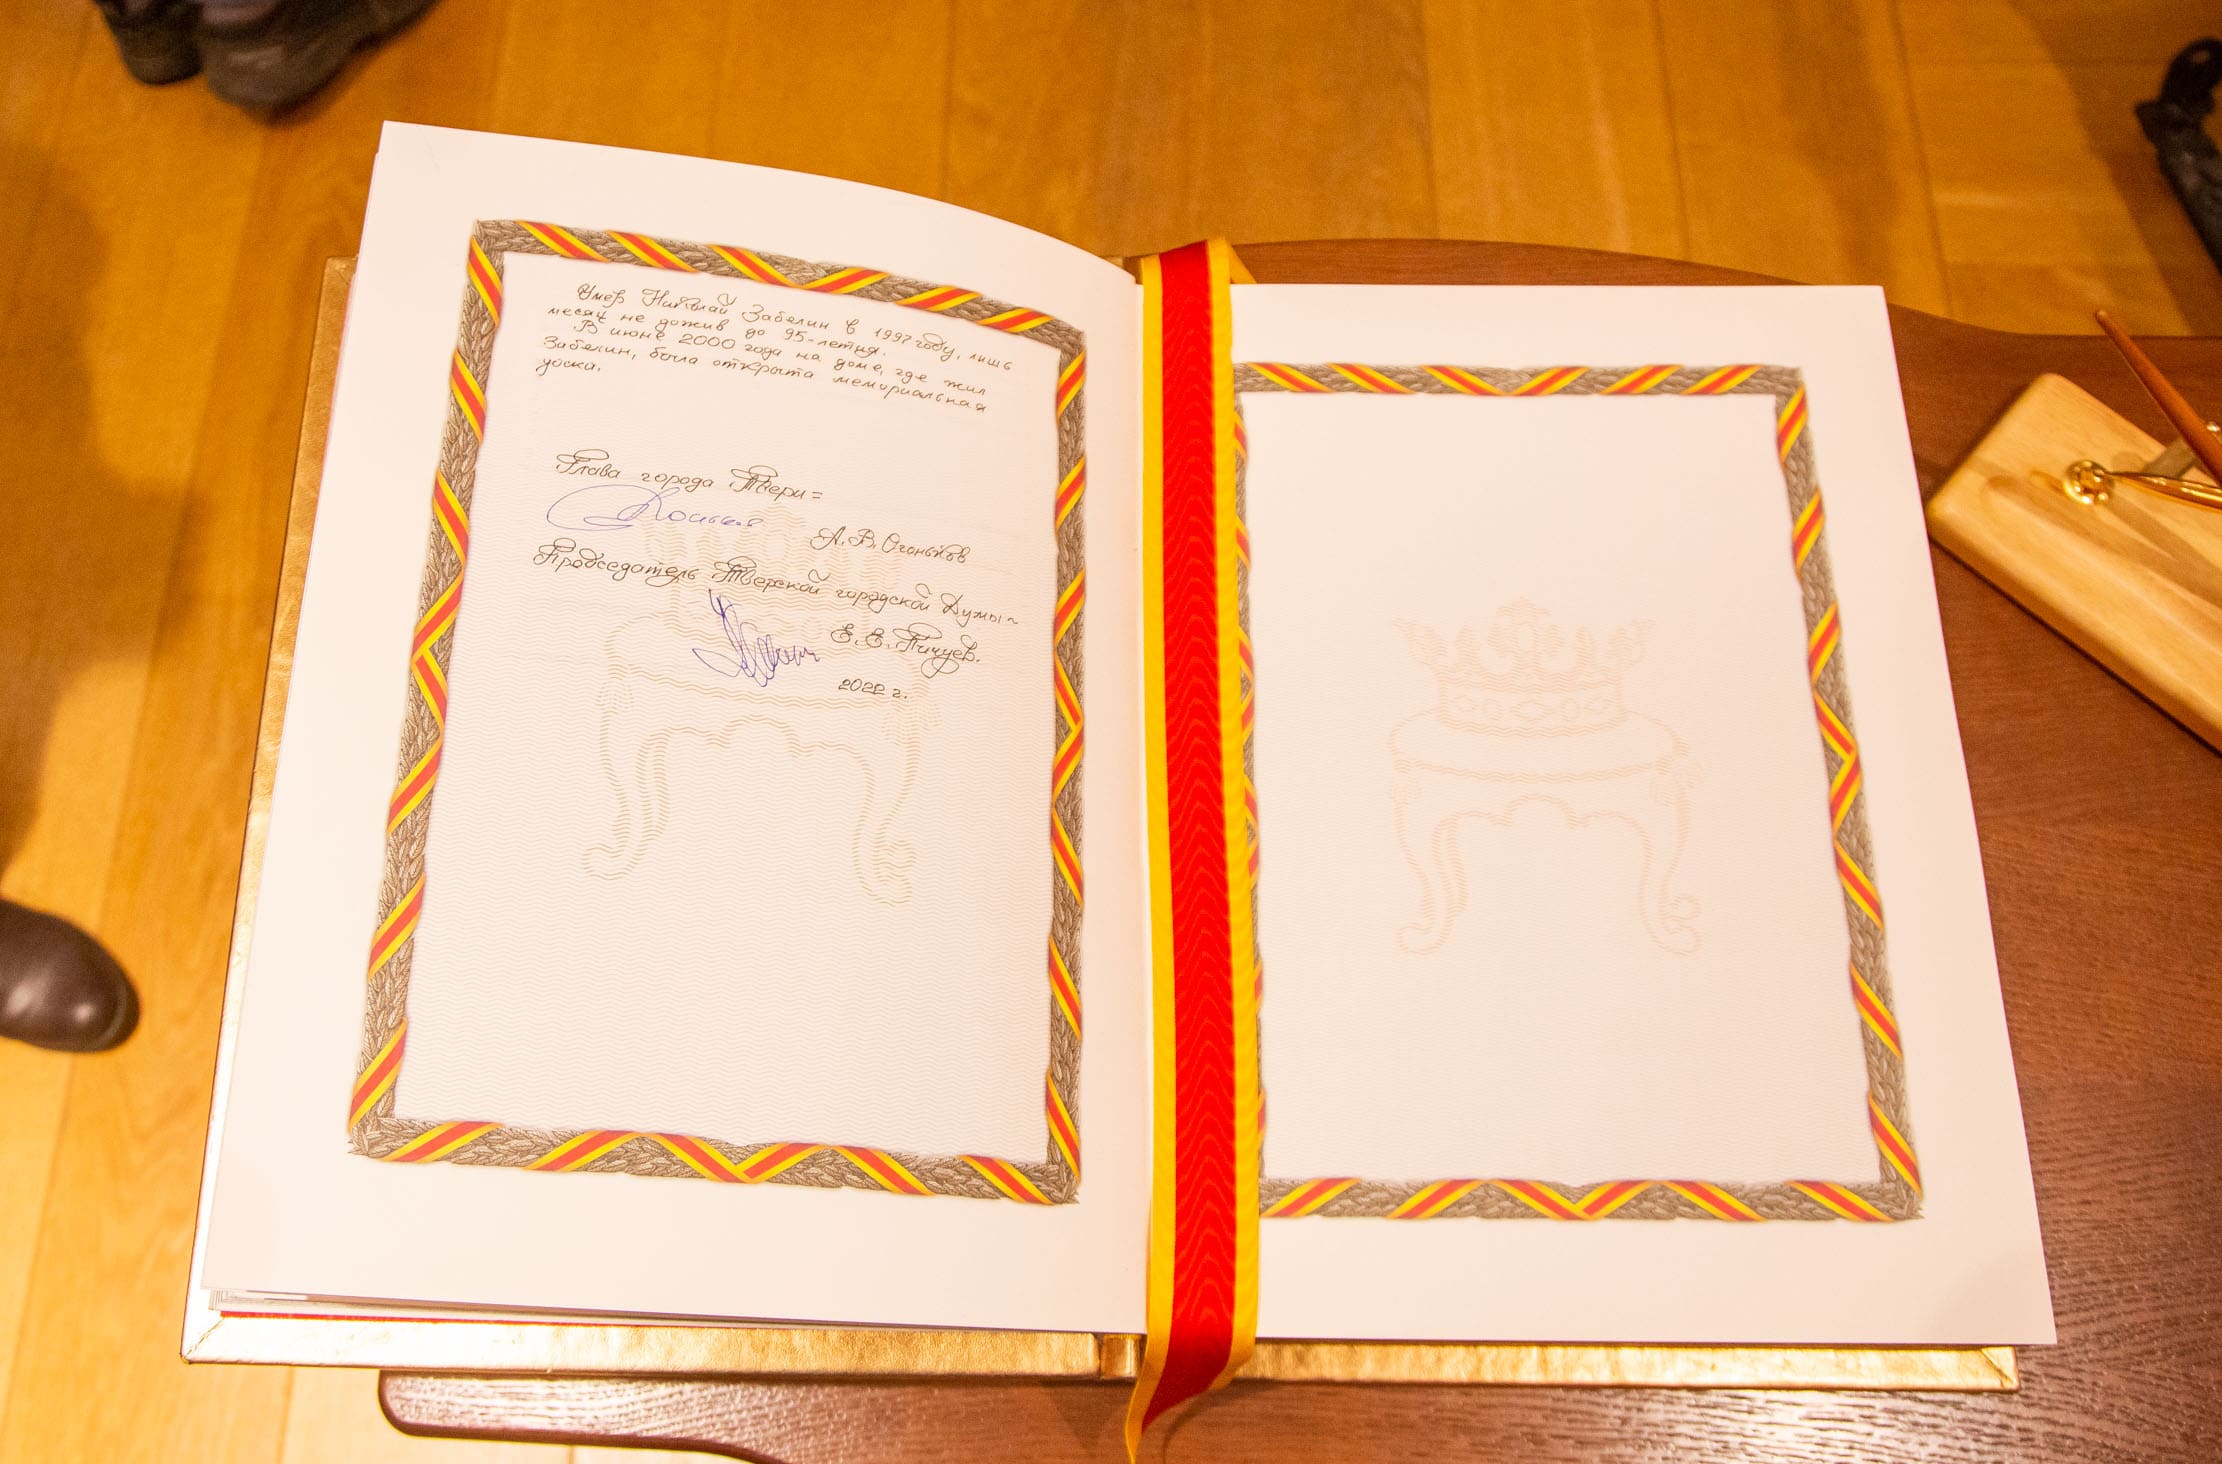 Умер Николай Забелин в 1997 году, лишь
месяц не дожив до 95-летия.
В июне 2000 года на доме, где жил
Забелин, была открыта мемориальная
доска.
Глава города Твери =
А. В. Огоньков
Председатель Тверской городской Думы -
Е. Е. Пичуев.
2022 г.